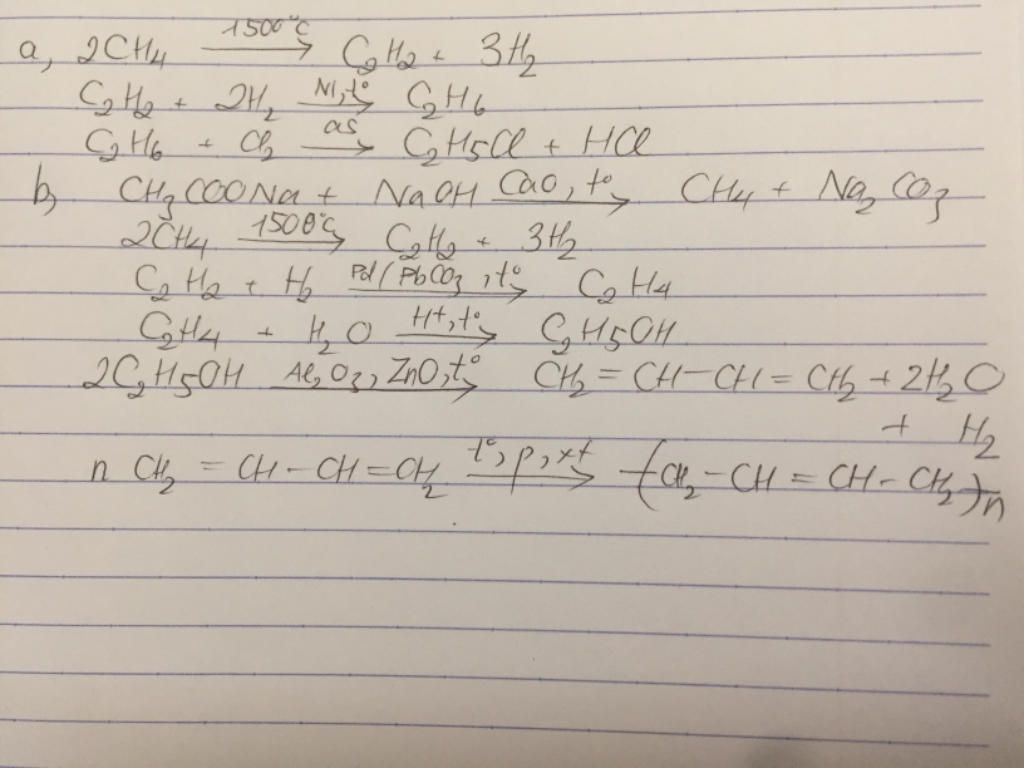 a, 2CH4 —1500°C→ C2H2 + 3H2
C2H2 + 2H2 —Ni,t°→ C2H6
C2H6 + Cl2 —as→ C2H5Cl + HCl
b, CH3COONa + NaOH —CaO, t°→ CH4 + Na2CO3
2CH4 —1500°C→ C2H2 + 3H2
C2H2 + H2 —Pd/PbCO3, t°→ C2H4
C2H4 + H2O —H+,t°→ C2H5OH
2C2H5OH —Al2O3, ZnO,t°→ CH2 = CH - CH = CH2 + 2H2O
+ H2
n CH2 = CH - CH = CH2 —t°, p, xt→ -(CH2 - CH = CH - CH2)-n